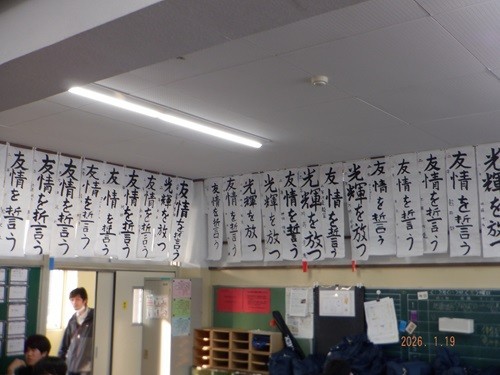 友情を誓う
友情を誓う
友情を誓う
友情を誓う
友情を誓う
友情を誓う
友情を誓う
光輝を放つ
友情を誓う
友情を誓う
友情を誓う
光輝を放つ
光輝を放つ
友情を誓う
光輝を放つ
友情を誓う
光輝を放つ
友情を誓う
友情を誓う
友情を誓う
友情を誓う
友情を誓う
2026. 1.19